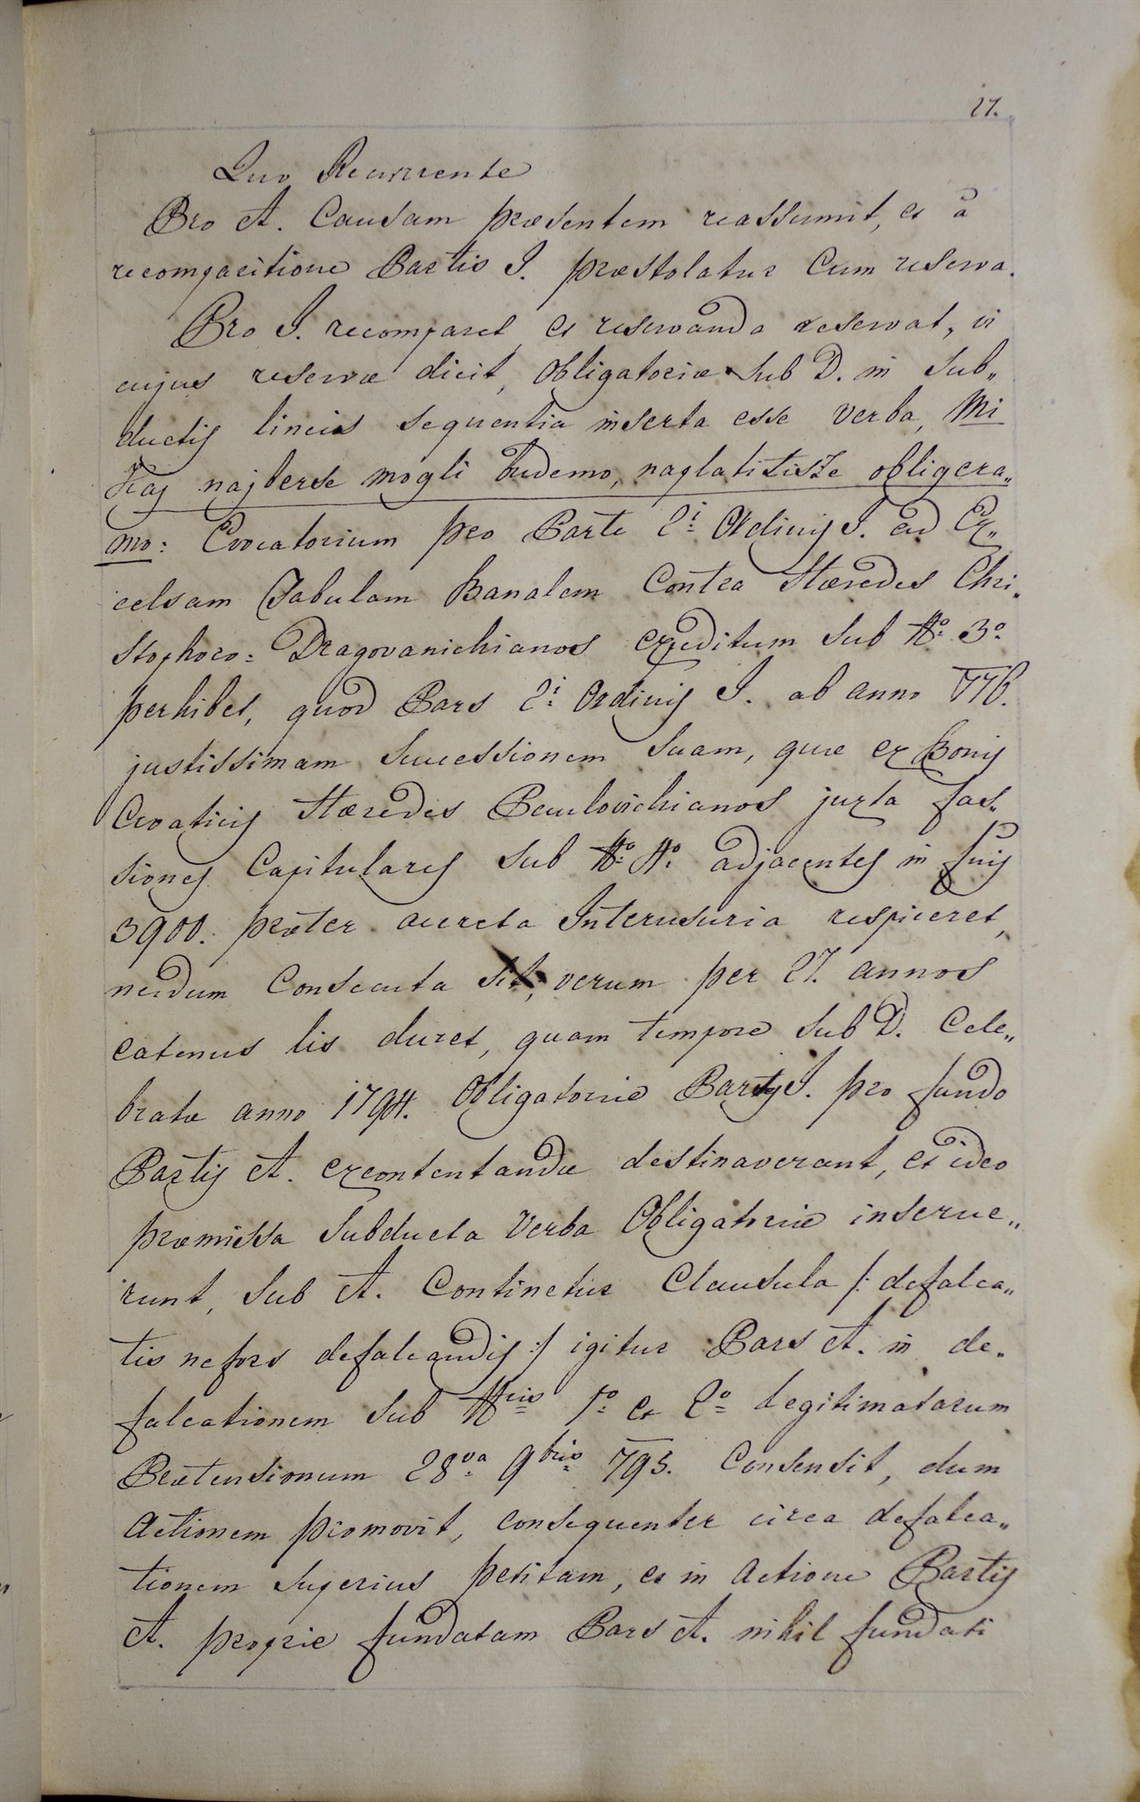 27.
Quo Recurrente
Pro A. Causam præsentem reassumit, et a
recomparitione Partis I. præstolatur Cum reserva.
Pro I. recomparet et reservanda reservat, vi
cujus reservæ dicit, Obligatoriæ sub D. in sub„
ductis lineis sequentia inserta esse verba, Mi
kaj najberse mogli budemo, naplatitisze obligera„
mo: Evocatorium pro Parte 2i Ordinis I. ad Ex„
celsam Tabulam Banalem Contra Hæredes Chri„
stophoro= Dragovanichianos expeditum sub No 3o
perhibet, quod Pars 2i Ordinis I. ab anno 776.
justissimam Successionem Suam, quæ ex Bonis
Croaticis Hæredes Paulovichianos juxta fas„
siones Capitulares sub No 4o adjacentes in fnis
3900. præter accreta Interusuria respiceret,
necdum Consecuta sit, verum per 27. annos
eatenus lis duret, quam tempore sub D. Cele„
bratæ anno 1794. Obligatoriæ Partes I. pro fundo
Partis A. excontentandæ destinaverant, et ideo
præmissa Subducta Verba Obligatoriæ inserue„
runt, sub A. Continetur Clausula /: defalca„
tis nefors defalcandis :/ igitur Pars A. in de„
falcationem sub Nris 1o et 2o legitimatarum
Prætensionum 28va 9bris 793. Consensit, dum
Actionem promovit, consequenter circa defalca„
tionem superius petitam, et in Actione Partis
A. proprie fundatam Pars A. nihil fundati